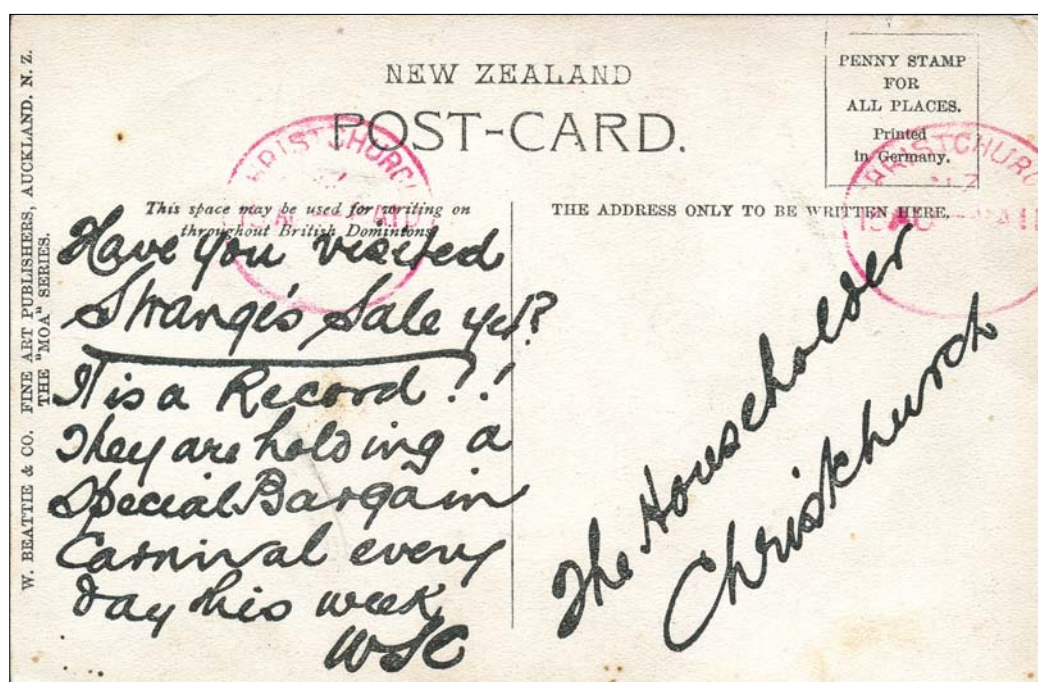 W. BEATTIE & CO. FINE ART PUBLISHERS, AUCKLAND. N. Z.
THE "MOA" SERIES.
NEW ZEALAND
POST-CARD.
PENNY STAMP
FOR
ALL PLACES.
Printed
in Germany.
This space may be used for writing on
throughout British Dominions
THE ADDRESS ONLY TO BE WRITTEN HERE.
Have you visited
Strange's Sale yet?
It is a Record!!
They are holding a
Special Bargain
Carnival every
day this week
WSC
The Householder
Christchurch